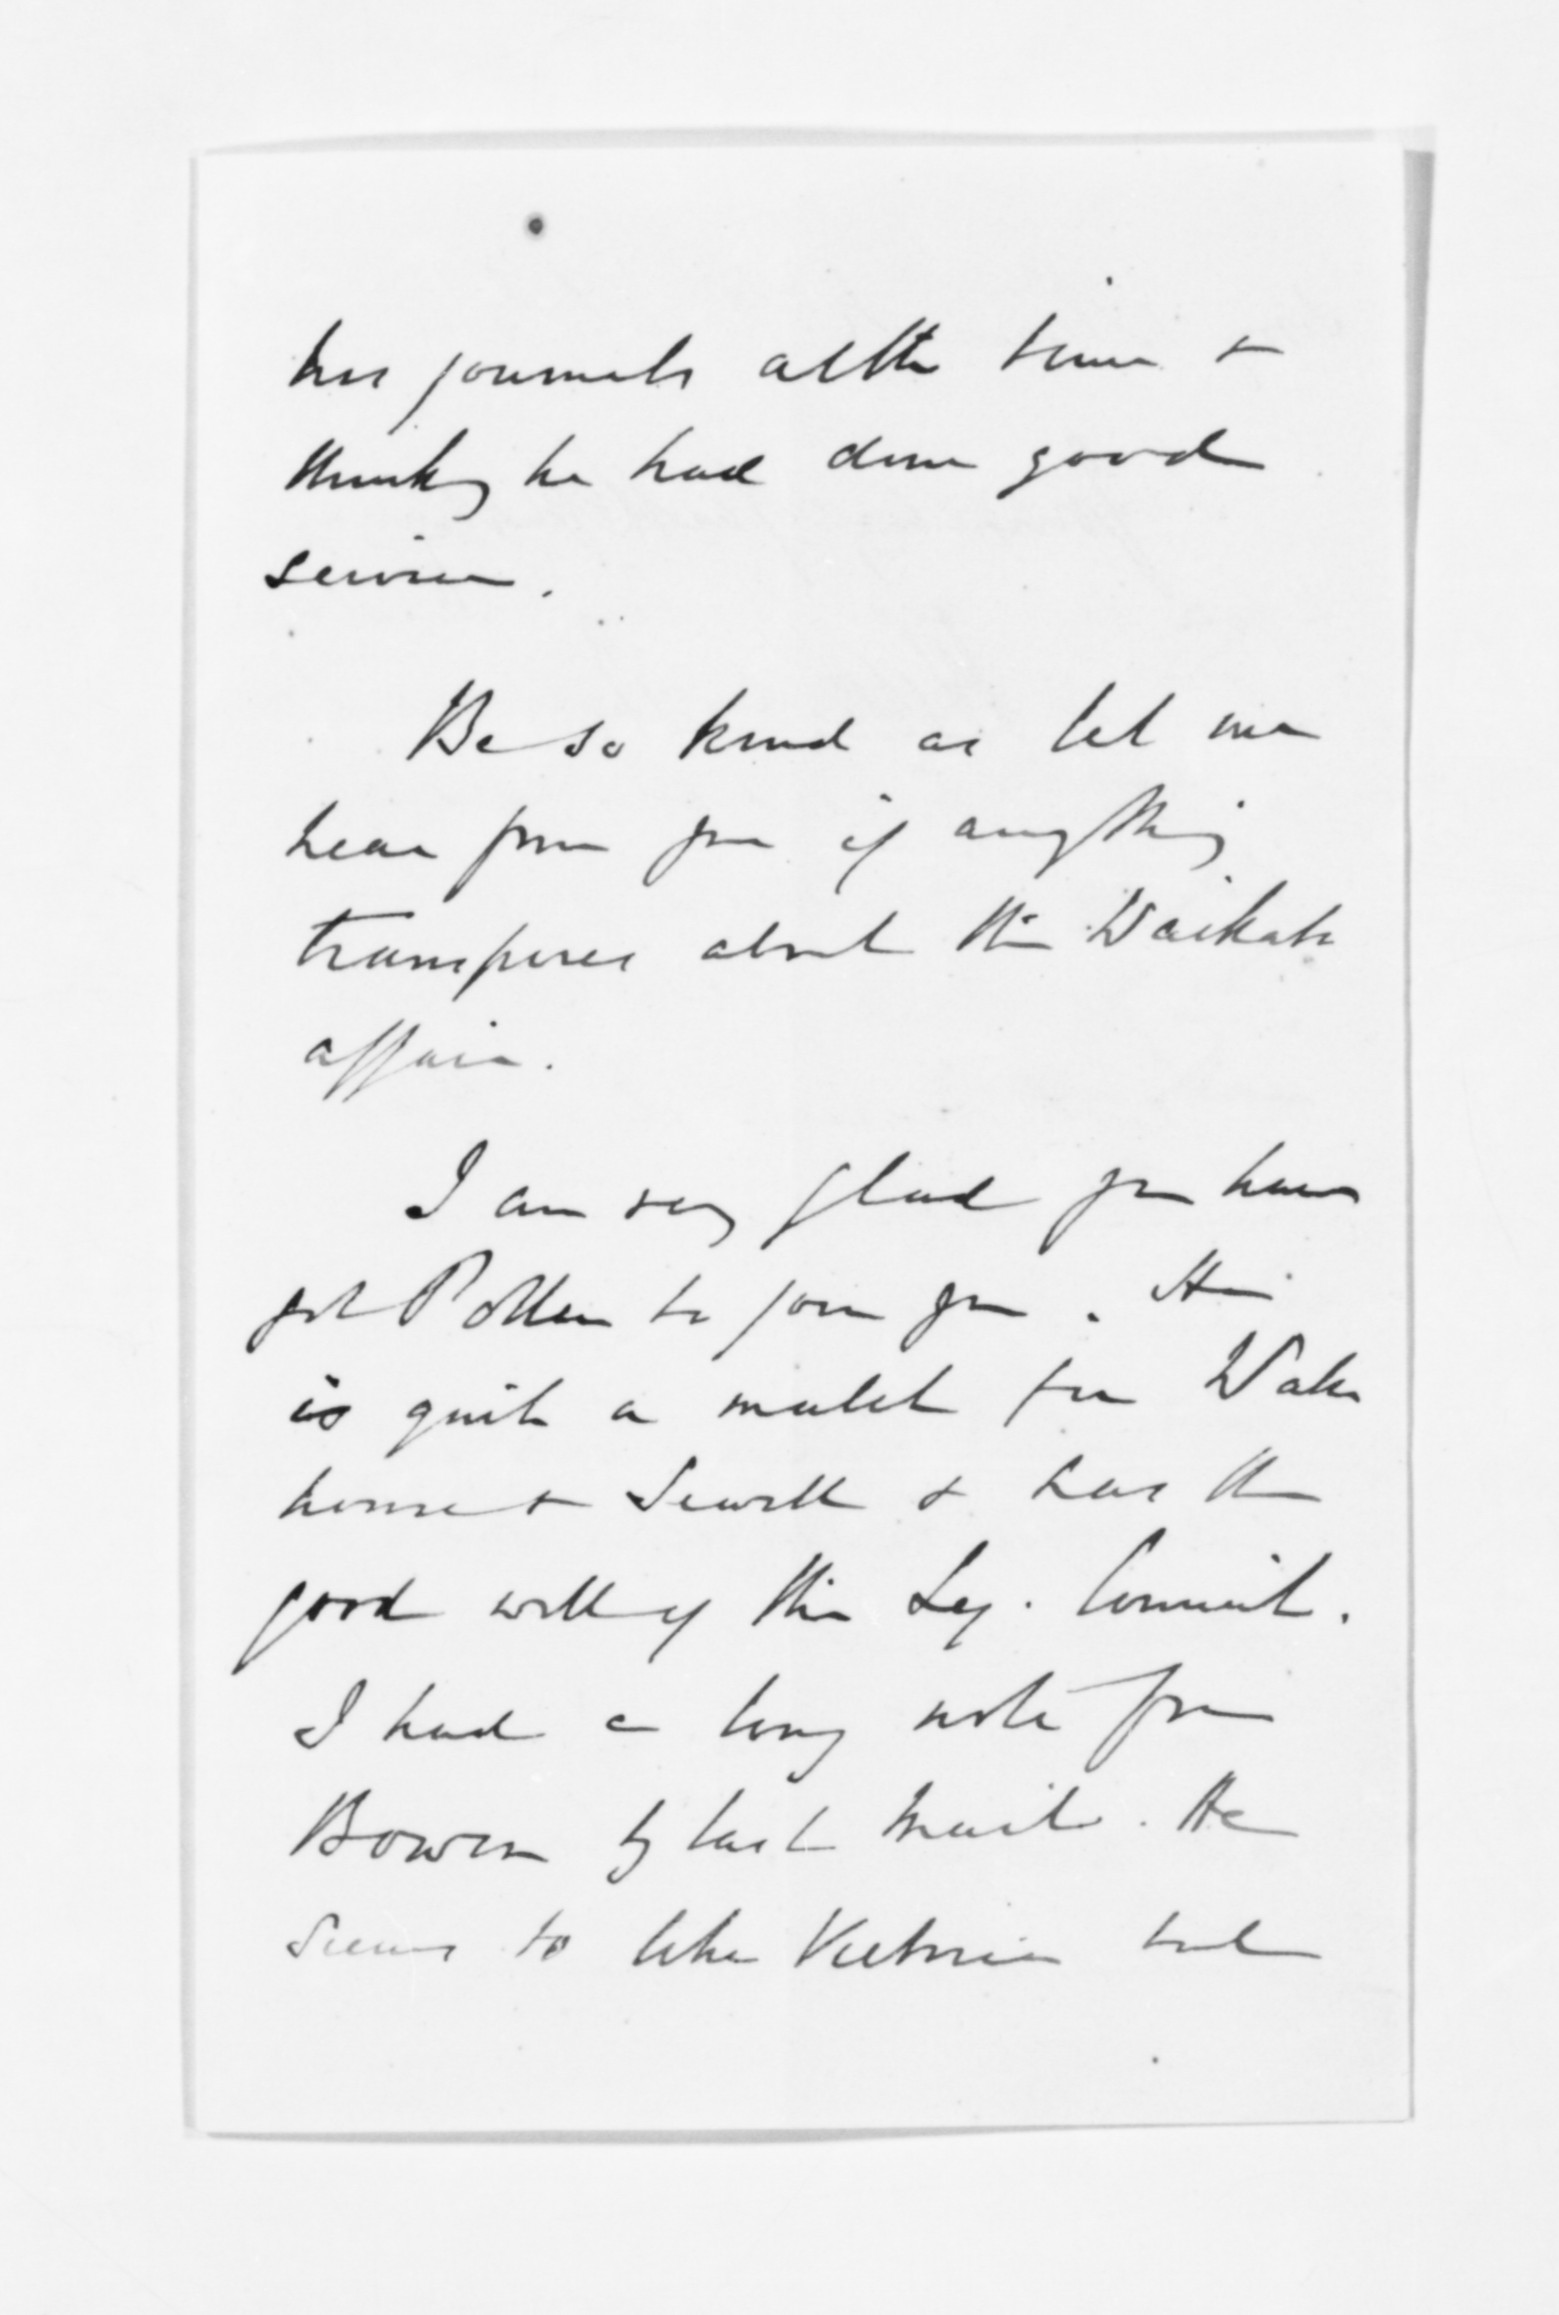 his journals all the time &
thinks he had done good
service.
Be so kind as let me
hear from you if anything
transpires about the Waikato
affair.
I am very glad you have
got Pollen to join you. He
is quite a match for Water
house & Sewell & has the
good will of the Leg. Council.
I had a long note from
Bowen by last mail. He
seems to like Victoria but